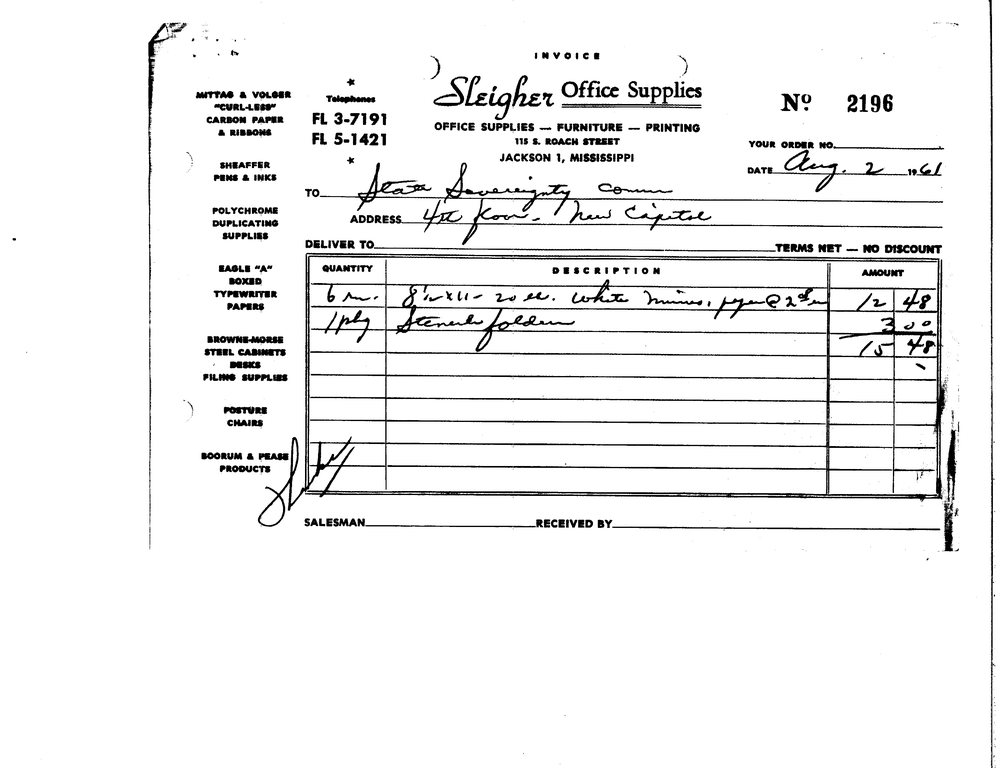 INVOICE
Sleigher Office Supplies
Nº 2196
OFFICE SUPPLIES — FURNITURE — PRINTING
115 S. ROACH STREET
JACKSON 1, MISSISSIPPI
★
Telephones
FL 3-7191
FL 5-1421
★
MITTAG & VOLGER
"CURL-LESS"
CARBON PAPER
& RIBBONS
SHEAFFER
PENS & INKS
POLYCHROME
DUPLICATING
SUPPLIES
EAGLE "A"
BOXED
TYPEWRITER
PAPERS
BROWNE-MORSE
STEEL CABINETS
DESKS
FILING SUPPLIES
POSTURE
CHAIRS
BOORUM & PEASE
PRODUCTS
YOUR ORDER NO.
DATE Aug. 2 1961
TO State Sovereignty Comm
ADDRESS 4th floor - New Capitol
DELIVER TO
TERMS NET — NO DISCOUNT
QUANTITY DESCRIPTION AMOUNT
6 rm. 8½ x 11 - 20 White mimeo. paper @ 2 12 48
1 pkg Stencil folders 3 00
15 48
SALESMAN RECEIVED BY